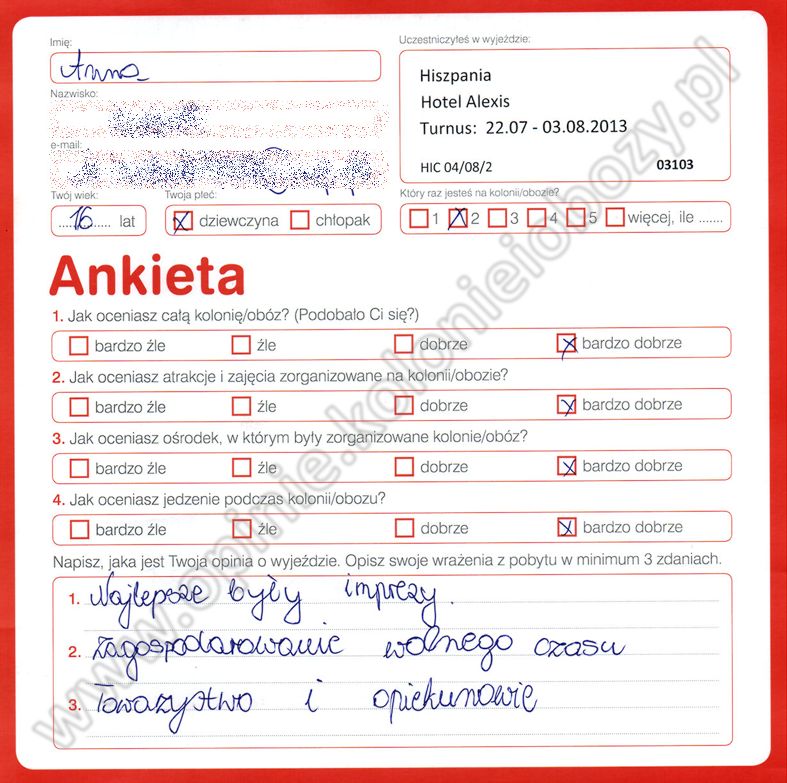 Imię:
Anna
Uczestniczyłeś w wyjeździe:
Hiszpania
Hotel Alexis
Turnus: 22.07 - 03.08.2013
HIC 04/08/2 03103
Nazwisko:
e-mail:
Twój wiek:
16 lat
Twoja płeć:
dziewczyna chłopak
Który raz jesteś na kolonii/obozie?
1 2 3 4 5 więcej, ile .......
Ankieta
1. Jak oceniasz całą kolonię/obóz? (Podobało Ci się?)
bardzo źle źle dobrze bardzo dobrze
2. Jak oceniasz atrakcje i zajęcia zorganizowane na kolonii/obozie?
bardzo źle źle dobrze bardzo dobrze
3. Jak oceniasz ośrodek, w którym były zorganizowane kolonie/obóz?
bardzo źle źle dobrze bardzo dobrze
4. Jak oceniasz jedzenie podczas kolonii/obozu?
bardzo źle źle dobrze bardzo dobrze
Napisz, jaka jest Twoja opinia o wyjeździe. Opisz swoje wrażenia z pobytu w minimum 3 zdaniach.
1. Najlepsze były imprezy.
2. Zagospodarowanie wolnego czasu
3. Towazystwo i opiekunowie
www.opinie.kolonieiobozy.pl